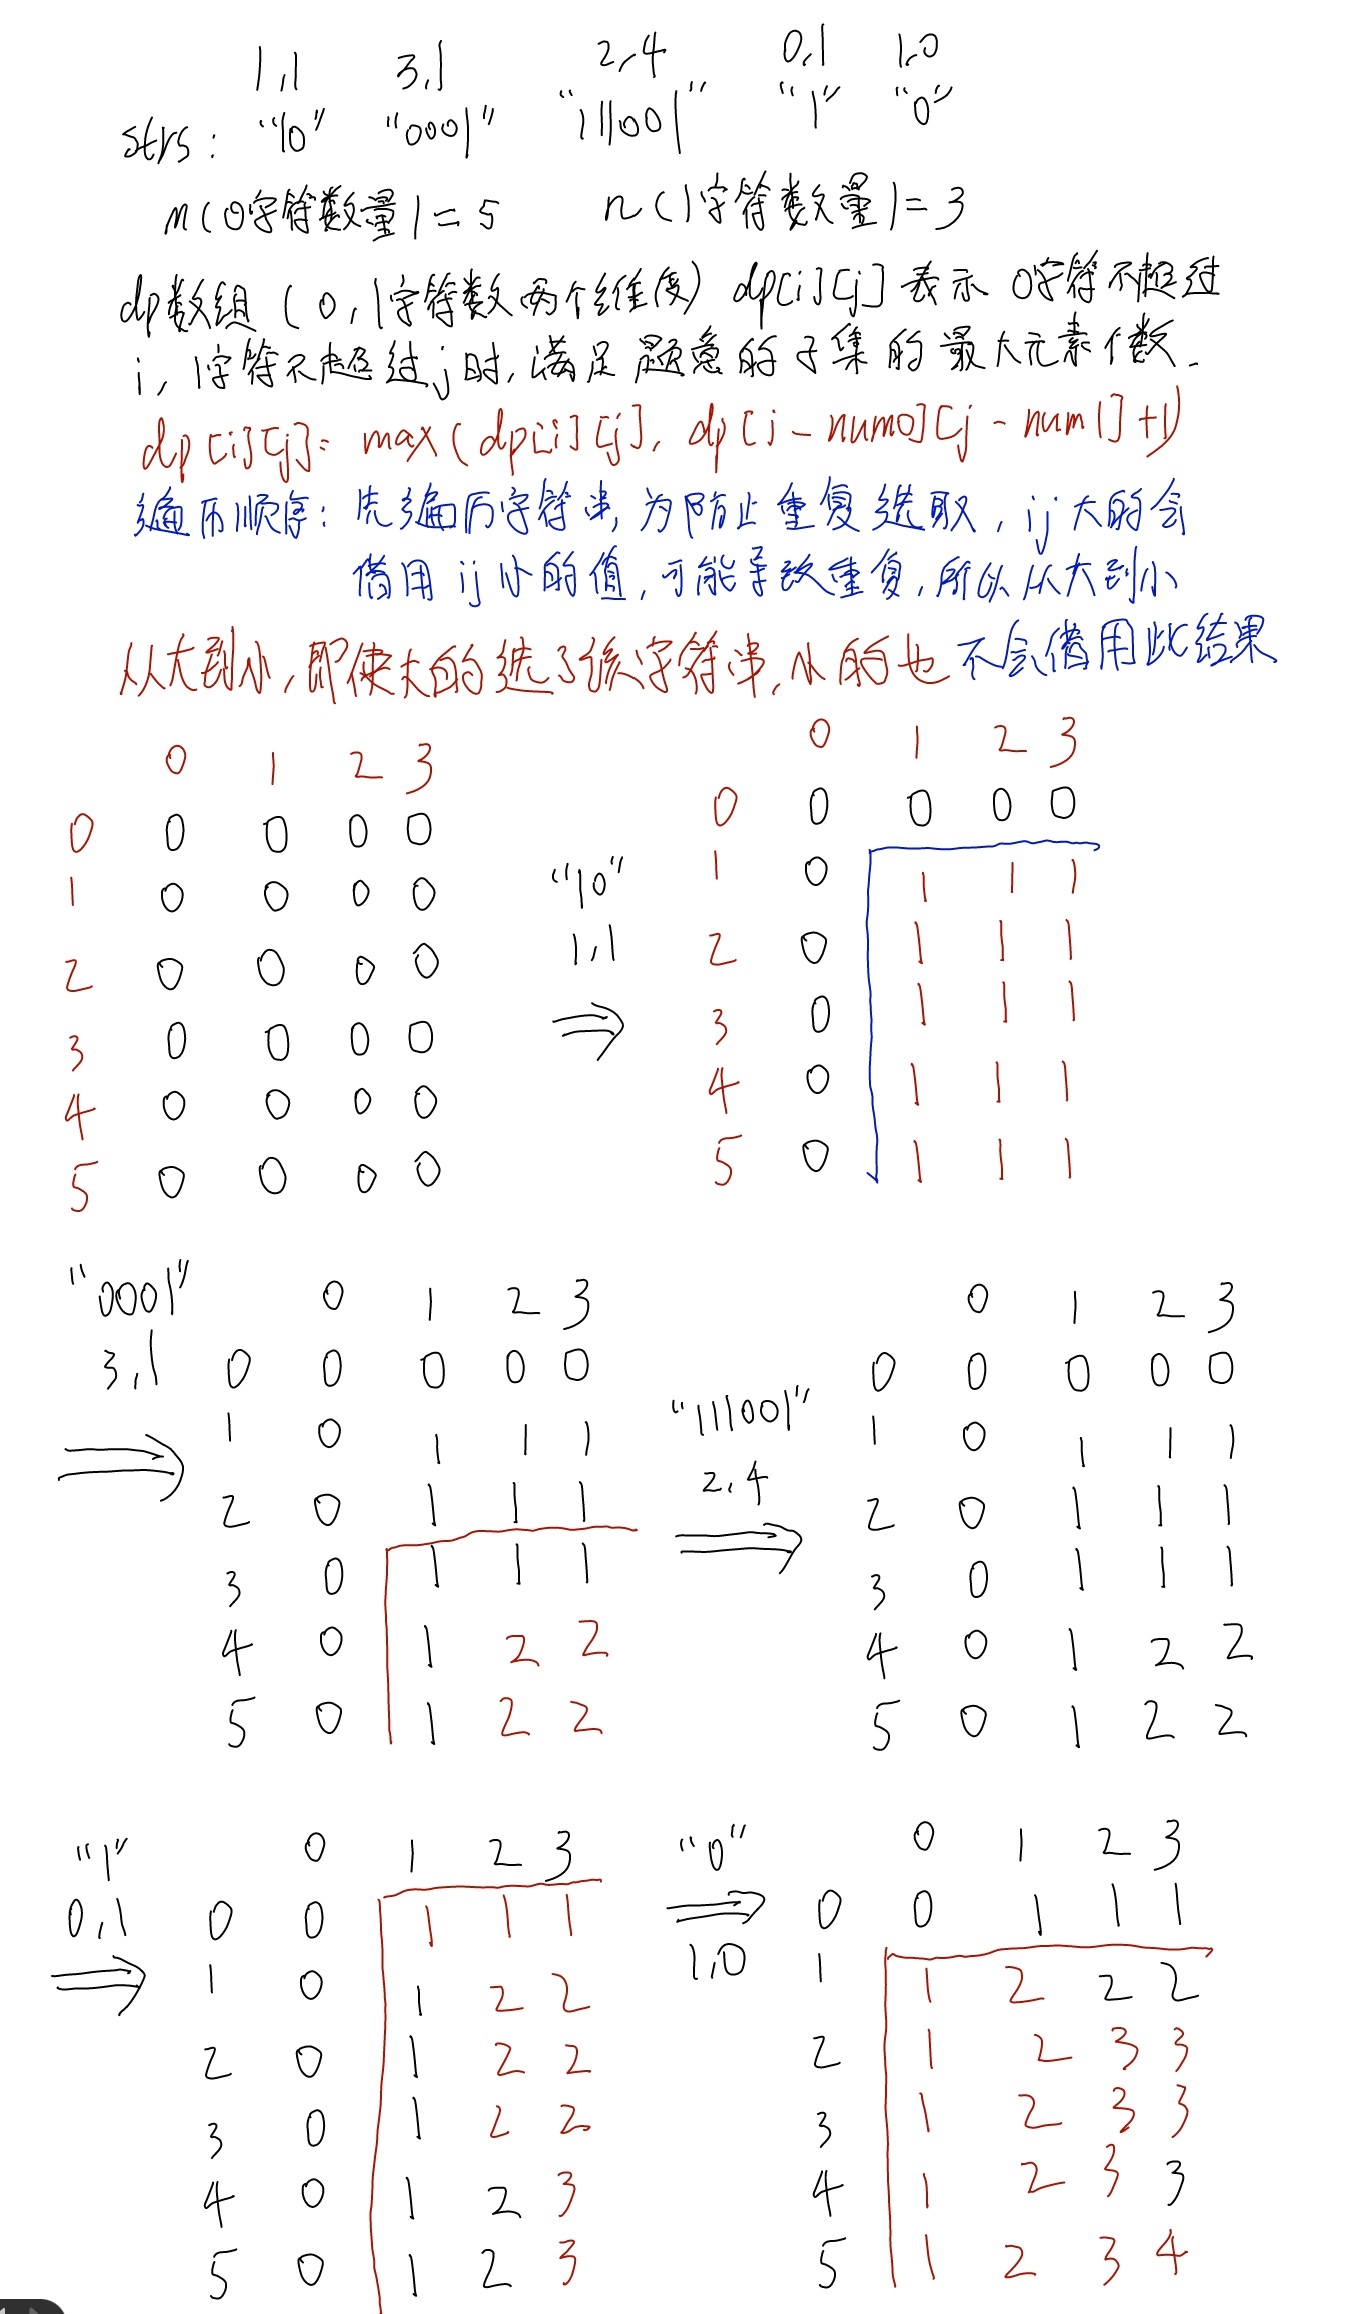 1,1 3,1 2,4 0,1 1,0
strs: "10" "0001" "111001" "1" "0"
m(0字符数量)=5 n(1字符数量)=3
dp数组(0,1字符数两个维度) dp[i][j]表示 0字符不超过
i, 1字符不超过j时,满足题意的子集的最大元素个数.
dp[i][j]= max(dp[i][j], dp[i-num0][j-num1]+1)
遍历顺序: 先遍历字符串,为防止重复选取, ij大的会
借用ij小的值,可能导致重复,所以从大到小
从大到小,即使大的选了该字符串,小的也不会借用此结果
0 1 2 3
0 0 0 0 0
1 0 0 0 0
2 0 0 0 0
3 0 0 0 0
4 0 0 0 0
5 0 0 0 0
"10"
1,1
0 1 2 3
0 0 0 0 0
1 0 1 1 1
2 0 1 1 1
3 0 1 1 1
4 0 1 1 1
5 0 1 1 1
"0001"
3,1
0 1 2 3
0 0 0 0 0
1 0 1 1 1
2 0 1 1 1
3 0 1 1 1
4 0 1 2 2
5 0 1 2 2
"111001"
2,4
0 1 2 3
0 0 0 0 0
1 0 1 1 1
2 0 1 1 1
3 0 1 1 1
4 0 1 2 2
5 0 1 2 2
"1"
0,1
0 1 2 3
0 0 1 1 1
1 0 1 2 2
2 0 1 2 2
3 0 1 2 2
4 0 1 2 3
5 0 1 2 3
"0"
1,0
0 1 2 3
0 0 1 1 1
1 1 2 2 2
2 1 2 3 3
3 1 2 3 3
4 1 2 3 3
5 1 2 3 4